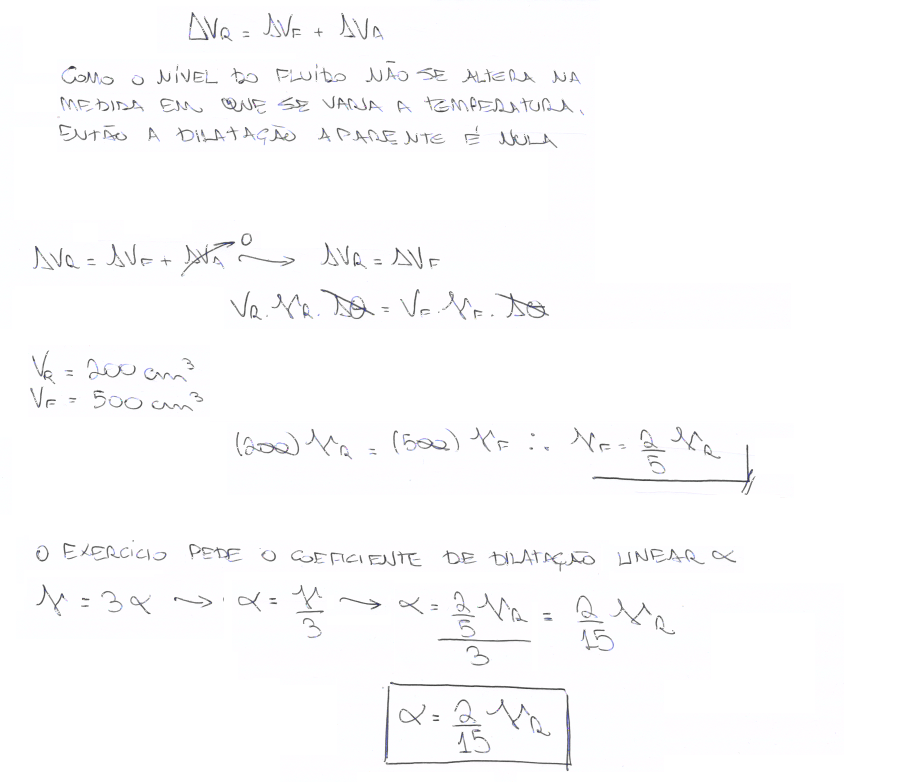 ΔVR = ΔVF + ΔVA
COMO O NÍVEL DO FLUÍDO NÃO SE ALTERA NA
MEDIDA EM QUE SE VARIA A TEMPERATURA,
ENTÃO A DILATAÇÃO APARENTE É NULA
ΔVR = ΔVF + ΔVA 0 → ΔVR = ΔVF
VR.γR.Δθ = VF.γF.Δθ
VR = 200 cm³
VF = 500 cm³
(200)γR = (500)γF ∴ γF = 2/5 γR
O EXERCÍCIO PEDE O COEFICIENTE DE DILATAÇÃO LINEAR α
γ = 3α → α = γ/3 → α = (2/5 γR)/3 = 2/15 γR
α = 2/15 γR